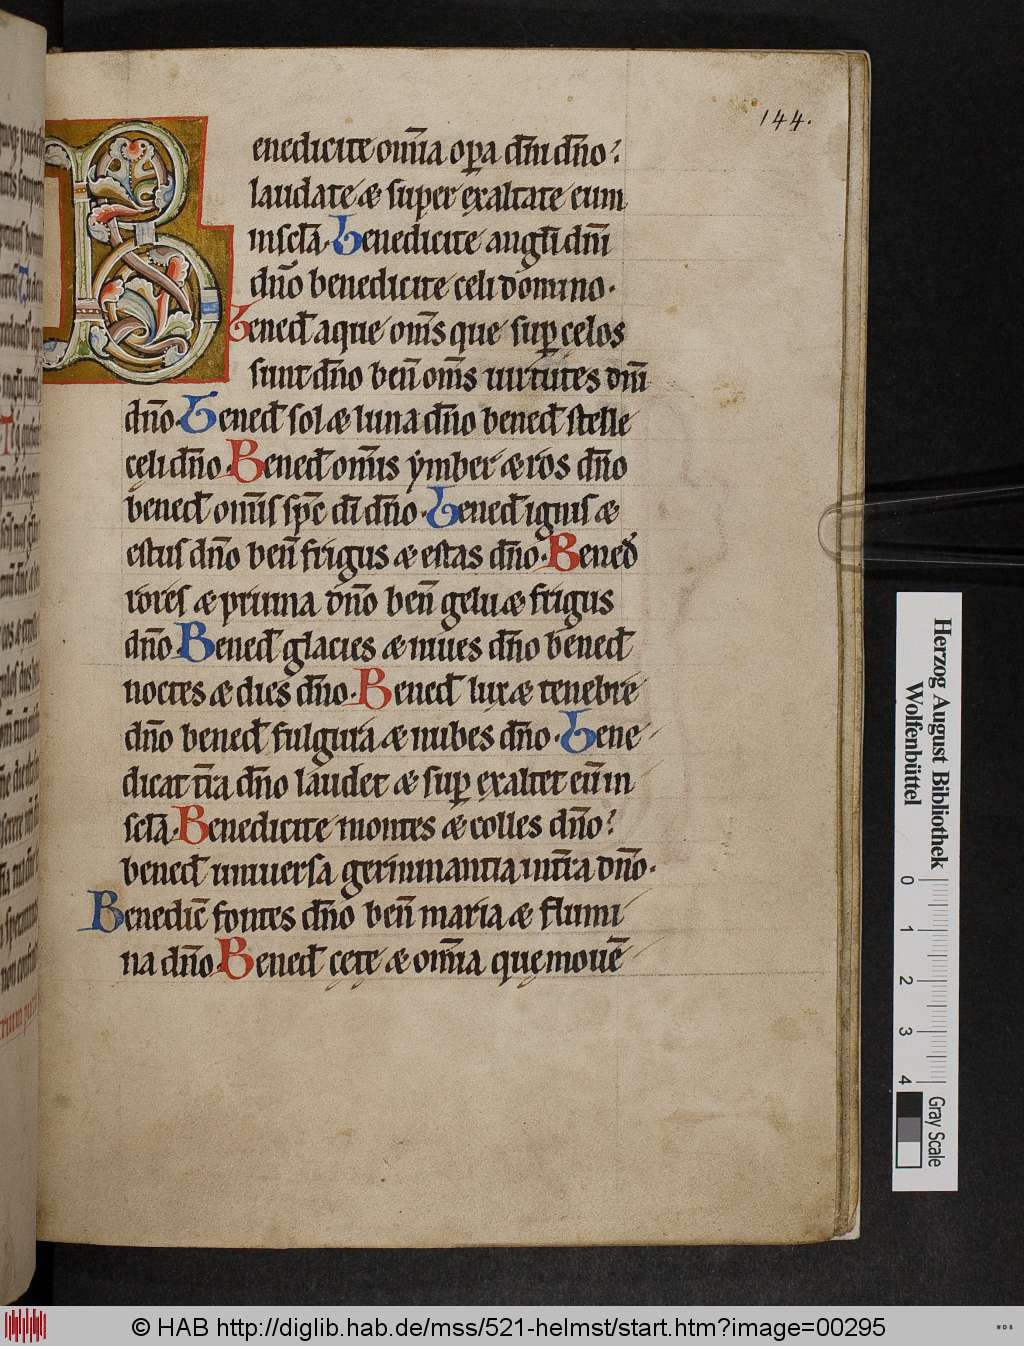 144.
Benedicite om̄ia oꝑa dn̄i dn̄o:
laudate & super exaltate eum
in scl̄a. Benedicite angl̄i dn̄i
dn̄o benedicite celi domino.
Bened̄ aque om̄s que suꝑ celos
sunt dn̄o ben̄ om̄s uirtutes dn̄i
dn̄o. Bened̄ sol & luna dn̄o bened̄ stelle
cęli dn̄o. Bened̄ om̄is ẏmber & ros dn̄o
bened̄ om̄is sp̄c dī dn̄o. Bened̄ ignis &
estus dn̄o ben̄ frigus & estas dn̄o. Bened̄
rores & pruina dn̄o ben̄ gelu & frigus
dn̄o. Bened̄ glacies & niues dn̄o bened̄
noctes & dies dn̄o. Bened̄ lux & tenebre
dn̄o bened̄ fulgura & nubes dn̄o. Bene
dicat t̄ra dn̄o laudet & suꝑ exaltet eū in
scl̄a. Benedicite montes & colles dn̄o:
bened̄ uniuersa germinantia in t̄ra dn̄o.
Benedic̄ fontes dn̄o ben̄ maria & flumi
na dn̄o. Bened̄ cętę & om̄ia quę mouēt
Herzog August Bibliothek
Wolfenbüttel
0 1 2 3 4
Gray Scale
© HAB http://diglib.hab.de/mss/521-helmst/start.htm?image=00295